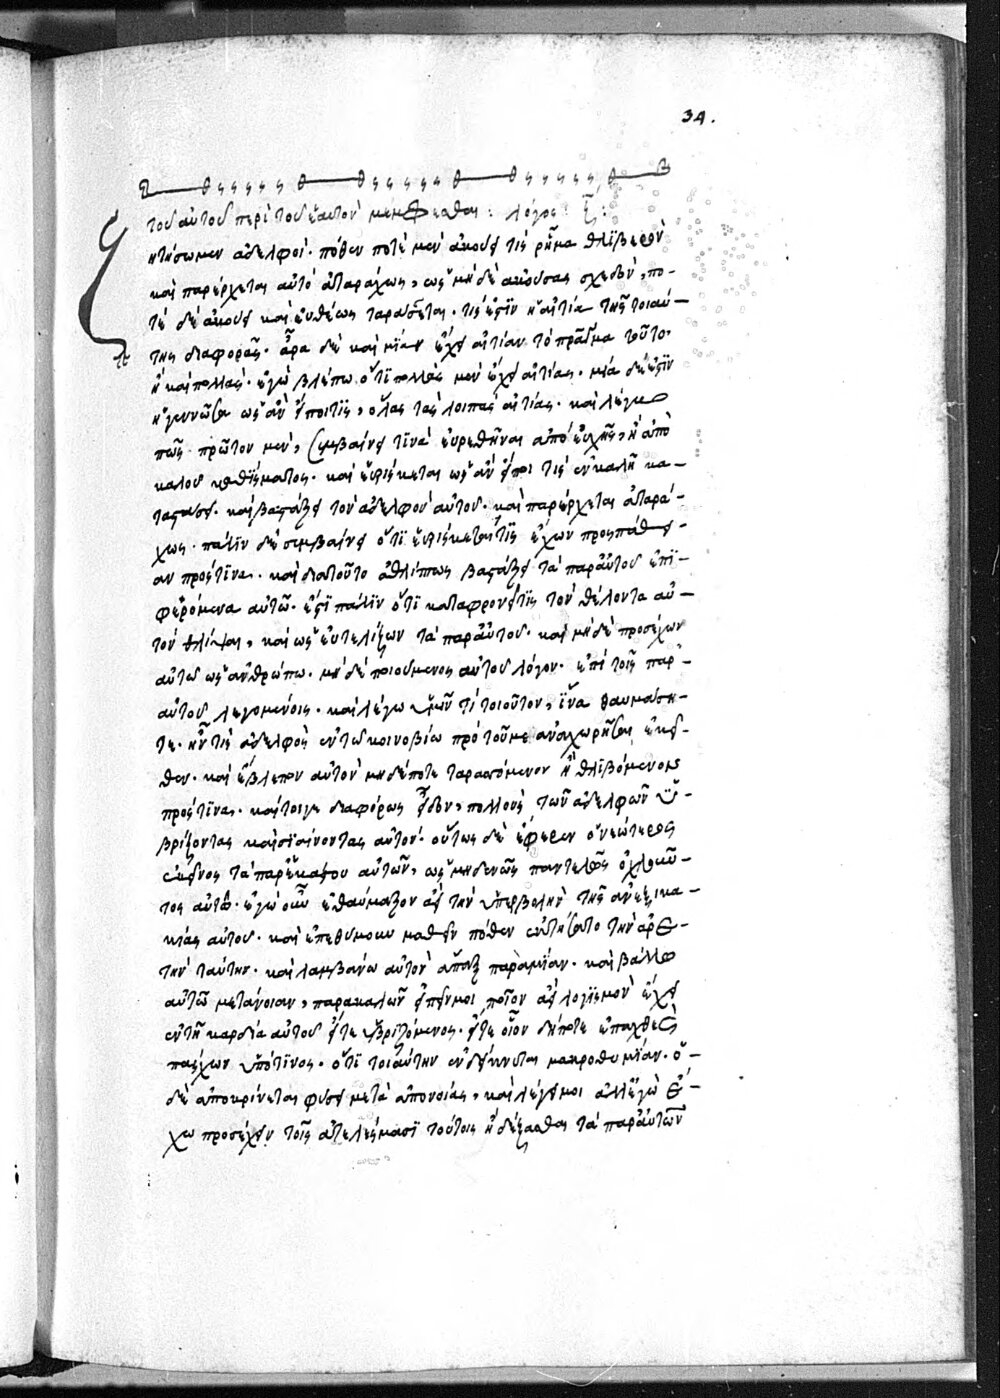 34.
τοῦ αὐτοῦ περὶ τοῦ ἑαυτὸν μέμφεσθαι : λόγος ζ :
Ζητήσωμεν ἀδελφοί· πόθεν ποτὲ μὲν ἀκούει τίς ῥῆμα θλιβερὸν
καὶ παρέρχεται αὐτὸ ἀταράχως, ὡς μὴ δὲ ἀκούσας σχεδόν, πο-
τὲ δὲ ἀκούει καὶ εὐθέως ταράσσεται· τίς ἐστὶν ἡ αἰτία τῆς τοιαύ-
της διαφορᾶς· ἆρα δὲ καὶ μίαν ἔχει αἰτίαν τὸ πρᾶγμα τοῦτο·
ἢ καὶ πολλάς· ἐγὼ βλέπω ὅτι πολλὰς μὲν ἔχει αἰτίας· μία δὲ ἐστὶν
ἡ γεννῶσα ὡς ἂν εἴποι τίς, ὅλας τὰς λοιπὰς αἰτίας· καὶ λέγω
πῶς· πρῶτον μὲν, συμβαίνει τινὰ εὑρεθῆναι ἀπὸ εὐχῆς, ἢ ἀπὸ
καλοῦ καθίσματος· καὶ εὑρίσκεται ὡς ἂν εἴποι τίς ἐν καλῆ κα-
ταστάσει· καὶ βαστάζει τὸν ἀδελφὸν αὐτοῦ· καὶ παρέρχεται ἀταρά-
χως· πάλιν δὲ συμβαίνει ὅτι εὑρίσκεται τίς ἔχων προσπάθει-
αν πρός τινα· καὶ διατοῦτο ἀθλίπτως βαστάζει τὰ παρ' αὐτοῦ ἐπι-
φερόμενα αὐτῶ· ἔστι πάλιν ὅτι καταφρονεῖ τίς τὸν θέλοντα αὐ-
τὸν θλίψαι, καὶ ὡς εὐτελίζων τὰ παρ' αὐτοῦ· καὶ μὴ δὲ προσέχων
αὐτῶ ὡς ἀνθρώπω· μὴ δὲ ποιούμενος αὐτοῦ λόγον· ἐπὶ τοῖς παρ'-
αὐτοῦ λεγομένοις· καὶ λέγω ὑμῖν τί τοιοῦτον, ἵνα θαυμάση-
τε· ἦν τίς ἀδελφὸς ἐν τῶ κοινοβίω πρὸ τοῦ με ἀναχωρῆσαι ἐκεῖ-
θεν· καὶ ἔβλεπον αὐτὸν μηδέποτε ταρασσόμενον ἢ θλιβόμενον
πρός τινα· καίτοιγε διαφόρως εἶδον, πολλοὺς τῶν ἀδελφῶν ὑ-
βρίζοντας καὶ σιαίνοντας αὐτόν· οὕτως δὲ ἔφερεν ὁ νεώτερος
ἐκεῖνος τὰ παρ' ἑκάστου αὐτῶν, ὡς μηδενὸς παντελῶς ὀχλοῦν-
τος αὐτῶ· ἐγὼ οὖν ἐθαύμαζον ἀεὶ τὴν ὑπερβολὴν τῆς ἀνεξικα-
κίας αὐτοῦ· καὶ ἐπεθύμουν μαθεῖν πόθεν ἐκτήσατο τὴν ἀρε-
τὴν ταύτην· καὶ λαμβάνω αὐτὸν ἅπαξ παρὰ μίαν· καὶ βάλλω
αὐτῶ μετάνοιαν, παρακαλῶν εἰπεῖν μοι ποῖον ἀεὶ λογισμὸν ἔχει
ἐν τῆ καρδία αὐτοῦ εἴτε ὑβριζόμενος· εἴτε οἷον δήποτε ἐπαχθὲς
πάσχων ὑπό τινος· ὅτι τοιαύτην ἐνδείκνυται μακροθυμίαν· ὁ-
δὲ ἀποκρίνεται φυσεῖ μετὰ ἀπονοίας, καὶ λέγει μοι ἀλλ' ἐγὼ ἔ-
χω προσέχειν τοῖς ἀτελέσμασι τούτοις ἢ δέξασθαι τὰ παρ' αὐτῶν